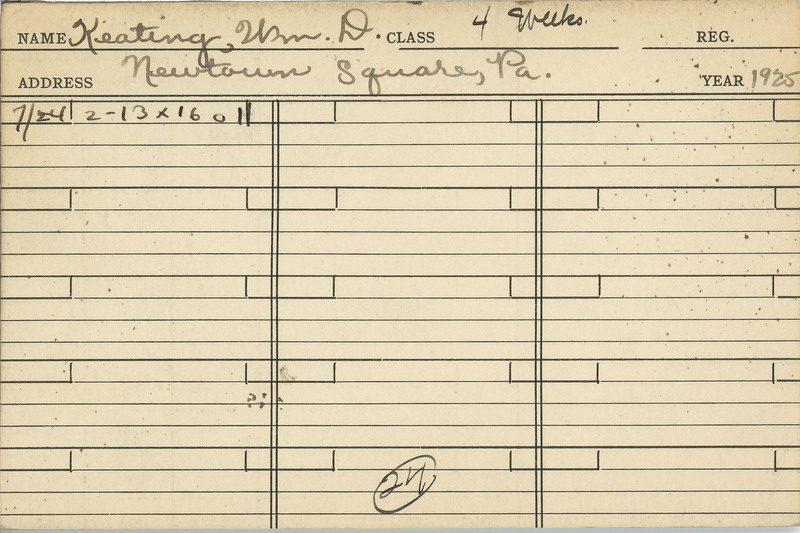 NAME Keating, Wm. D. CLASS 4 Weeks. REG.
ADDRESS Newtown Square, Pa. YEAR 1925
7/24 2-13 x 16 0 11
24